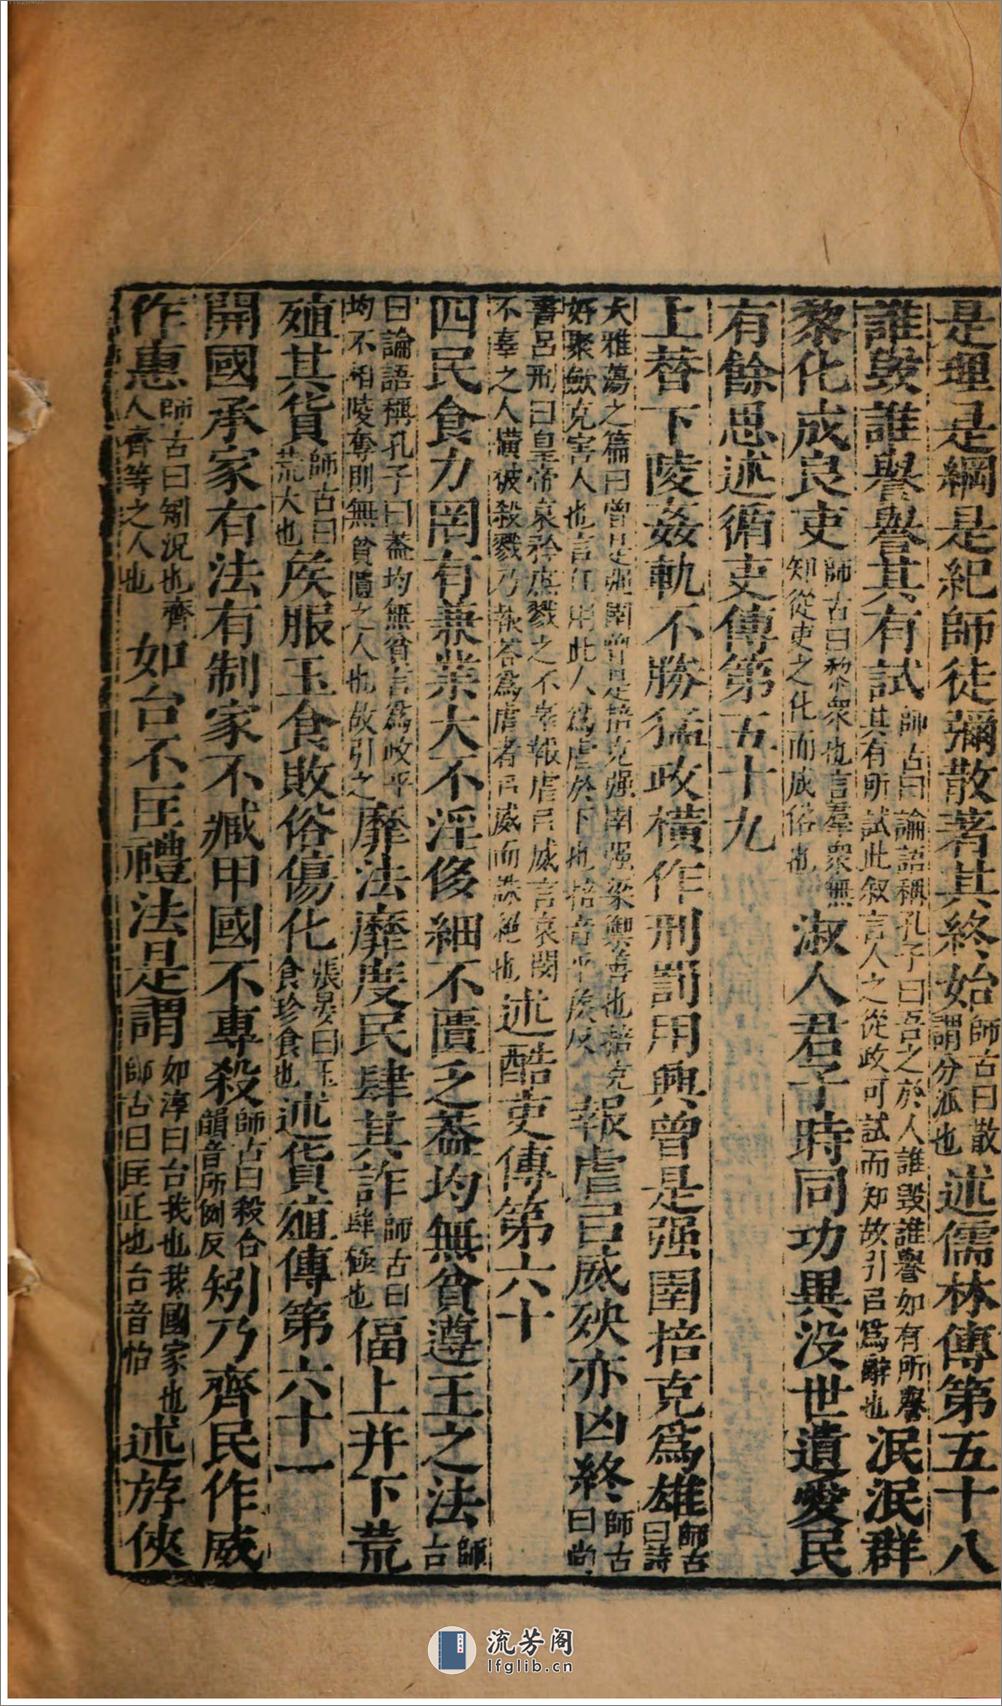 是理是綱是紀師徒彌散著其終始師古曰散謂分派也述儒林傳第五十八
誰毀誰譽譽其有試師古曰論語稱孔子曰吾之於人誰毀誰譽如有所譽其有所試此叙言人之從政可試而知故引㠯為辭也泯泯群
黎化成良吏師古曰黎衆也言羣衆無知從吏之化而成俗也淑人君子時同功異没世遺愛民
有餘思述循吏傳第五十九
上替下陵姦軌不勝猛政横作刑罰用興曾是强圉掊克為雄師古曰詩
大雅蕩之篇曰曾是彊圉曾是掊克强圉强梁禦善也掊克好聚斂克害人也言任用此人為虐於下也掊音平侯反報虐㠯威殃亦凶終師古曰尚
書吕刑曰皇帝哀矜庶戮之不辜報虐㠯威言哀閔不辜之人横被殺戮乃報荅為虐者㠯威而誅絶也述酷吏傳第六十
四民食力罔有兼業大不淫侈細不匱乏葢均無貧遵王之法師古
曰論語稱孔子曰葢均無貧言為政平均不相陵奪則無貧匱之人也故引之靡法靡度民肆其詐師古曰肆極也偪上并下荒
殖其貨師古曰荒大也矦服玉食敗俗傷化張晏曰玉食珍食也述貨殖傳第六十一
開國承家有法有制家不臧甲國不專殺師古曰殺合韻音所例反矧乃齊民作威
作惠師古曰矧况也齊人齊等之人也如台不匡禮法是謂如淳曰台我也我國家也師古曰匡正也台音怡述游俠
流芳阁
lfglib.cn